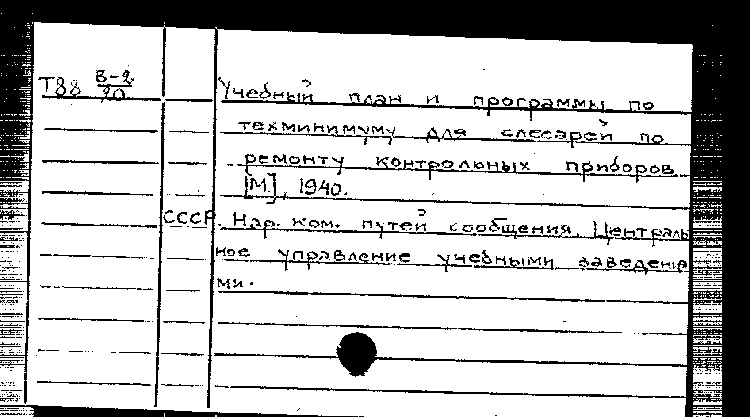 Т88 В-2/20
Учебный план и программы по
техминимуму для слесарей по
ремонту контрольных приборов
[М], 1940.
СССР. Нар. ком. путей сообщения. Централь
ное управление учебными заведени
ми.